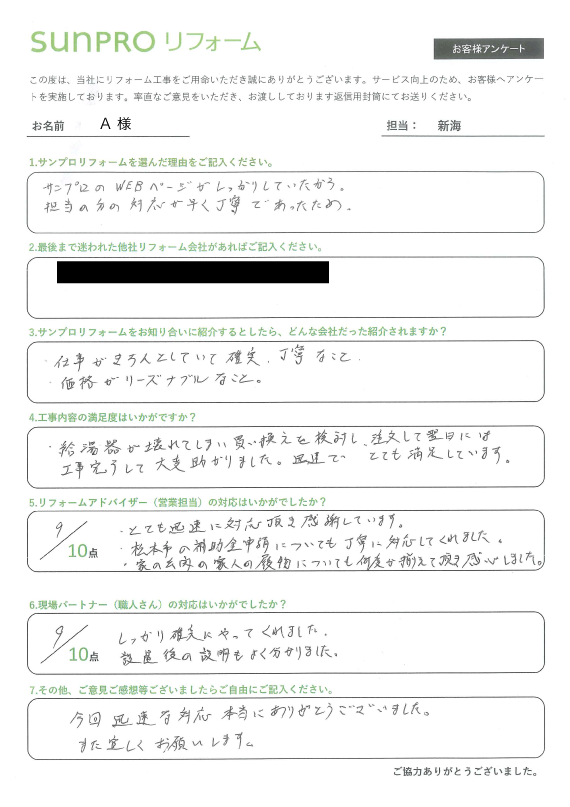 SUNPRO リフォーム
お客様アンケート
この度は、当社にリフォーム工事をご用命いただき誠にありがとうございます。サービス向上のため、お客様へアンケー
トを実施しております。率直なご意見をいただき、お渡ししております返信用封筒にてお送りください。
お名前 A 様 担当： 新海
1.サンプロリフォームを選んだ理由をご記入ください。
サンプロの WEBページがしっかりしていたから。
担当の方の対応が早く丁寧であったため。
2.最後まで迷われた他社リフォーム会社があればご記入ください。
3.サンプロリフォームをお知り合いに紹介するとしたら、どんな会社だった紹介されますか？
・仕事がきちんとしていて確実、丁寧なこと.
・価格がリーズナブルなこと。
4.工事内容の満足度はいかがですか？
・給湯器が壊れてしまい買い換えを検討し、注文して翌日には
工事完了して大変助かりました。迅速で とても満足しています。
5.リフォームアドバイザー（営業担当）の対応はいかがでしたか？
9/10点
・とても迅速に対応頂き感謝しています。
・松本市の補助金申請についても丁寧に対応してくれました。
・家の玄関の家人の履物についても何度か揃えて頂き感心しました。
6.現場パートナー（職人さん）の対応はいかがでしたか？
9/10点
しっかり確実にやってくれました.
設置後の説明もよく分かりました。
7.その他、ご意見ご感想等ございましたらご自由にご記入ください。
今回迅速な対応本当にありがとうございました。
また宜しくお願いします。
ご協力ありがとうございました。